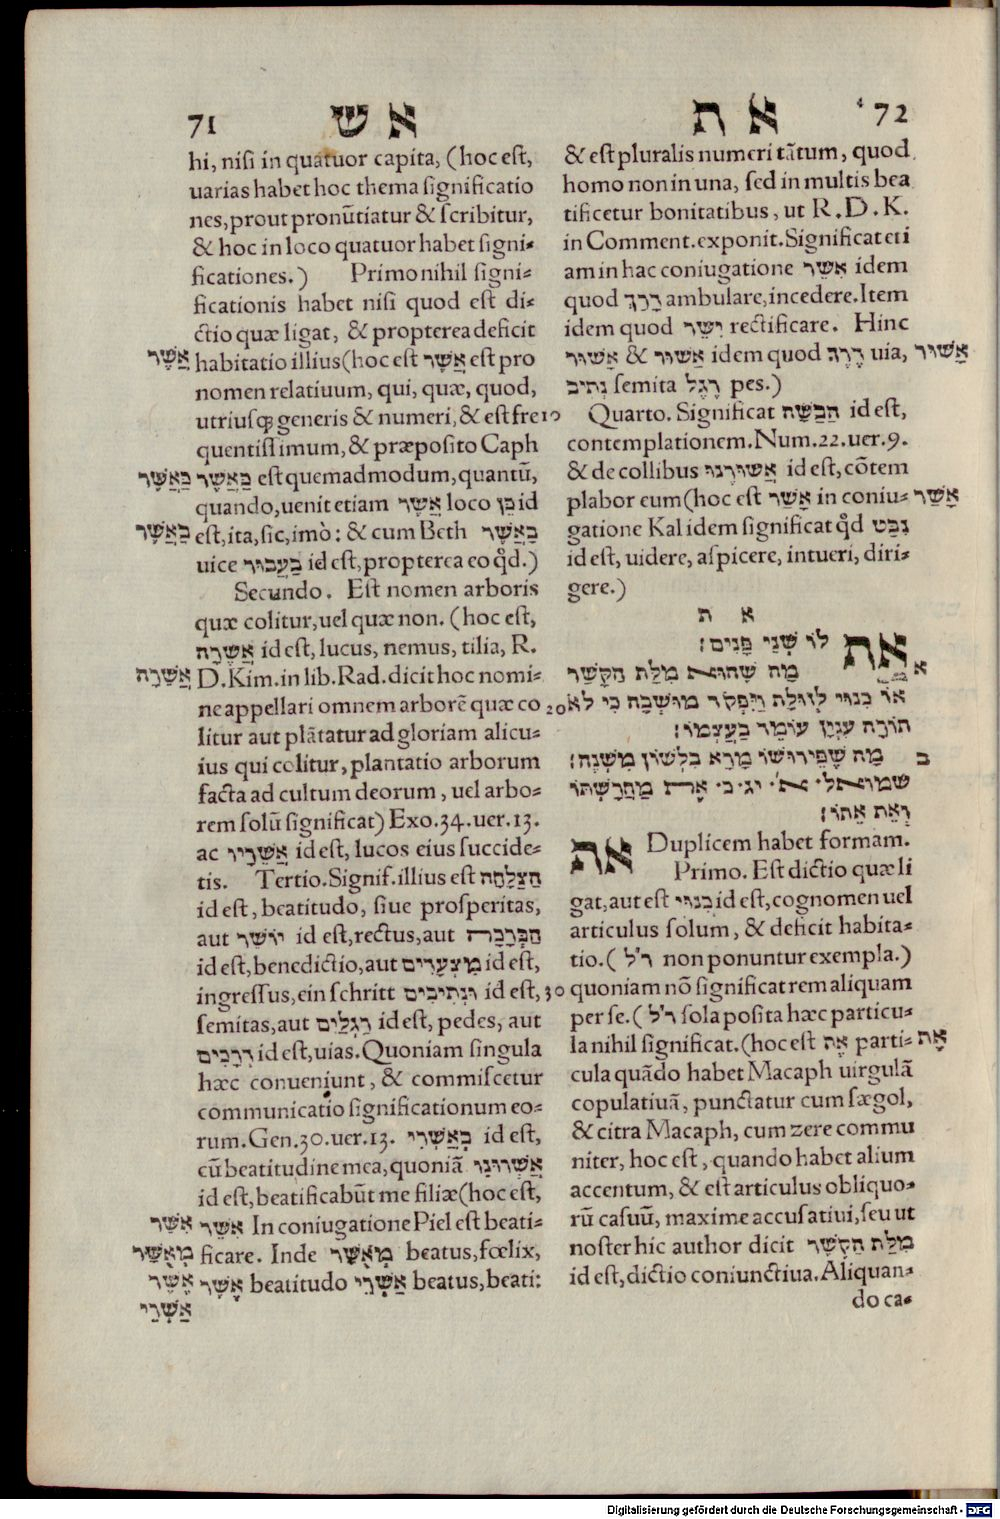 71 א ש
hi, nisi in quatuor capita, (hoc est,
uarias habet hoc thema significatio
nes, prout pronũtiatur & scribitur,
& hoc in loco quatuor habet signi-
ficationes.) Primo nihil signi-
ficationis habet nisi quod est di-
ctio quæ ligat, & propterea deficit
אֲשֶׁר habitatio illius (hoc est אֲשֶׁר est pro
nomen relatiuum, qui, quæ, quod,
utriusq; generis & numeri, & est fre
quentissimum, & præposito Caph
כַּאֲשֶׁר כַּאֲשֶׁר est quemadmodum, quantũ,
quando, uenit etiam אֲשֶׁר loco כֵּן id
בַּאֲשֶׁר est, ita, sic, imò: & cum Beth בַּאֲשֶׁר
uice בַּעֲבוּר id est, propterea eo q̃d.)
Secundo. Est nomen arboris
quæ colitur, uel quæ non. (hoc est,
אֲשֵׁרָה id est, lucus, nemus, tilia, R.
אֲשֵׁרָה D. Kim. in lib. Rad. dicit hoc nomi-
ne appellari omnem arborẽ quæ co
litur aut plãtatur ad gloriam alicu-
ius qui colitur, plantatio arborum
facta ad cultum deorum, uel arbo-
rem solũ significat) Exo. 34. uer. 13.
ac אֲשֵׁרָיו id est, lucos eius succide-
tis. Tertio. Signif. illius est הַצְלָחָה
id est, beatitudo, siue prosperitas,
aut יוֹשֶׁר id est, rectus, aut הַבְּרָכָה
id est, benedictio, aut מִצְעָדִים id est,
ingressus, ein schritt וּנְתִיבִים id est,
semitas, aut רַגְלַיִם id est, pedes, aut
דְּרָכִים id est, uias. Quoniam singula
hæc conueniunt, & commiscetur
communicatio significationum eo-
rum. Gen. 30. uer. 13. בְּאָשְׁרִי id est,
cũ beatitudine mea, quoniã אִשְּׁרוּנִי
id est, beatificabũt me filiæ (hoc est,
אִשֵּׁר אִשֵּׁר In coniugatione Piel est beati-
מְאֻשָּׁר ficare. Inde מְאֻשָּׁר beatus, fœlix,
אֹשֶׁר אֹשֶׁר beatitudo אַשְׁרֵי beatus, beati:
אַשְׁרֵי
א ת 72
& est pluralis numeri tãtum, quod
homo non in una, sed in multis bea
tificetur bonitatibus, ut R. D. K.
in Comment. exponit. Significat eti
am in hac coniugatione אִשֵּׁר idem
quod דָּרַךְ ambulare, incedere. Item
idem quod יִשֵּׁר rectificare. Hinc
אָשׁוּר & אַשּׁוּר idem quod דֶּרֶךְ uia, אָשׁוּר
נְתִיב semita רֶגֶל pes.)
10 Quarto. Significat הַבָּטָה id est,
contemplationem. Num. 22. uer. 9.
& de collibus אֲשׁוּרֶנּוּ id est, cõtem
plabor eum (hoc est אָשַׁר in coniu- אָשַׁר
gatione Kal idem significat q̃d נִבַּט
id est, uidere, aspicere, intueri, diri-
gere.)
א ת
אֵת לוֹ שְׁנֵי פָּנִים:
א מַה שֶׁהוּא מִלַּת הַקֶּשֶׁר
20 אוֹ כִנּוּי לְזוּלַת
תוֹרֶה עִנְיָן עוֹמֵד בְּעַצְמוֹ:
ב מַה שֶׁפֵּירוּשׁוֹ מָרָא בִּלְשׁוֹן מִשְׁנֶה:
שמואל. א׳. יג. כ. אֶת מַחֲרַשְׁתּוֹ
וְאֶת אֵתוֹ:
את Duplicem habet formam.
Primo. Est dictio quæ li
gat, aut est כִּנּוּי id est, cognomen uel
articulus solum, & deficit habita-
tio. (ר״ל non ponuntur exempla.)
30 quoniam nõ significat rem aliquam
per se. (ר״ל sola posita hæc particu-
la nihil significat. (hoc est אֶת parti- אֶת
cula quãdo habet Macaph uirgulã
copulatiuã, punctatur cum sægol,
& citra Macaph, cum zere commu
niter, hoc est, quando habet alium
accentum, & est articulus obliquo-
rũ casuũ, maxime accusatiui, seu ut
noster hic author dicit מִלַּת הַקֶּשֶׁר
id est, dictio coniunctiua. Aliquan-
do ca-
Digitalisierung gefördert durch die Deutsche Forschungsgemeinschaft - DFG